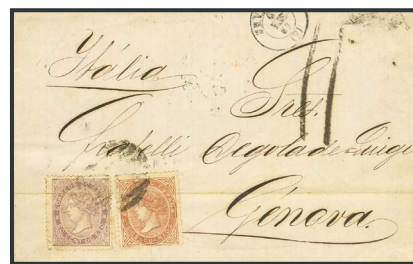 Itália
Sres.
Fratelli Degola de Luigi
Génova.